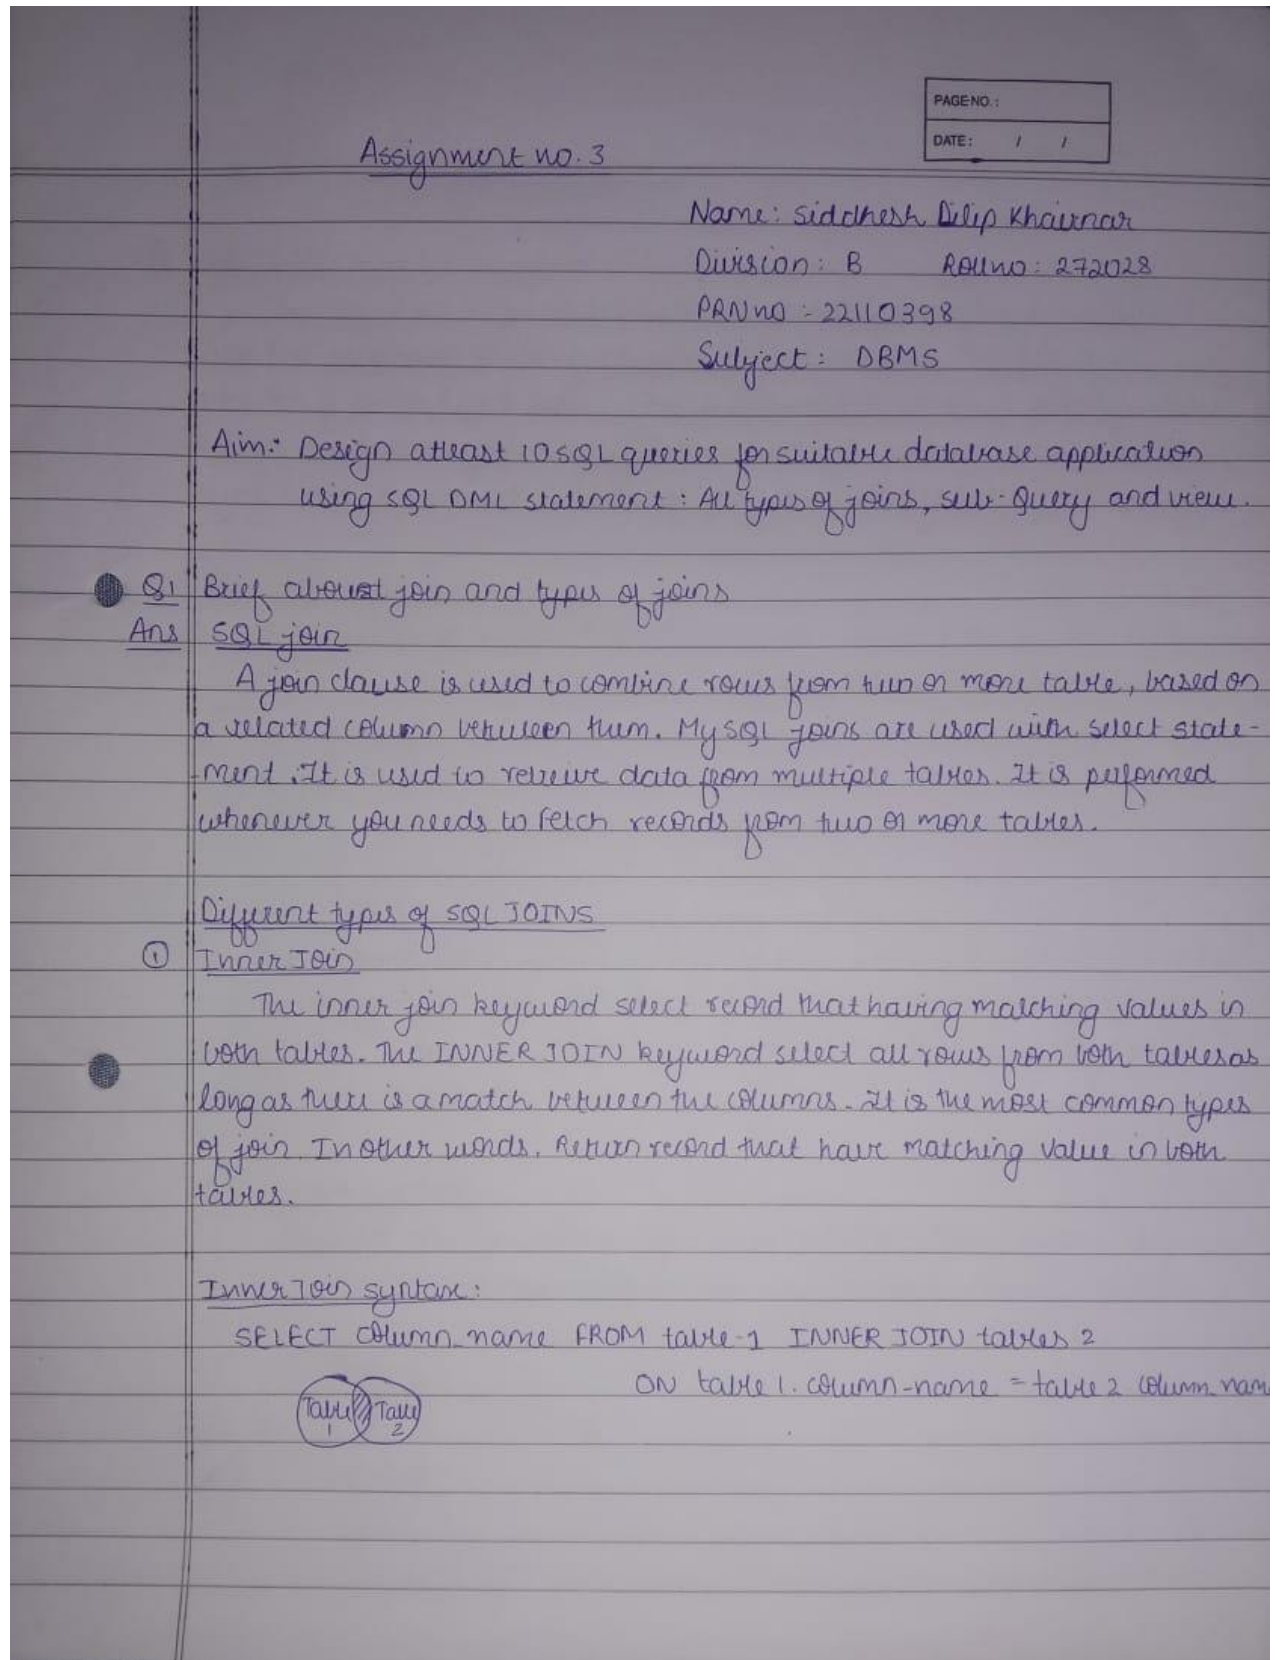 PAGE NO.:
DATE: / /
Assignment no. 3
Name: Siddhesh Dilip Khairnar
Division: B Rollno: 272028
PRN no :- 22110398
Subject: DBMS
Aim:- Design atleast 10 SQL queries for suitable database application
using SQL DML statement : All types of joins, sub-Query and view.
Q1 Brief about join and types of joins
Ans SQL join
A join clause is used to combine rows from two or more table, based on
a related column between them. My SQL joins are used with select state-
-ment. It is used to retreive data from multiple tables. It is performed
whenever you needs to fetch records from two or more tables.
Different types of SQL JOINS
① Inner Join
The inner join keyword select record that having matching values in
both tables. The INNER JOIN keyword select all rows from both tables as
long as there is a match between the columns. It is the most common types
of join. In other words, Return record that have matching value in both
tables.
Inner Join syntax:
SELECT column_name FROM table-1 INNER JOIN tables 2
ON table 1. column-name = table 2 column_nam
Table 1 Table 2